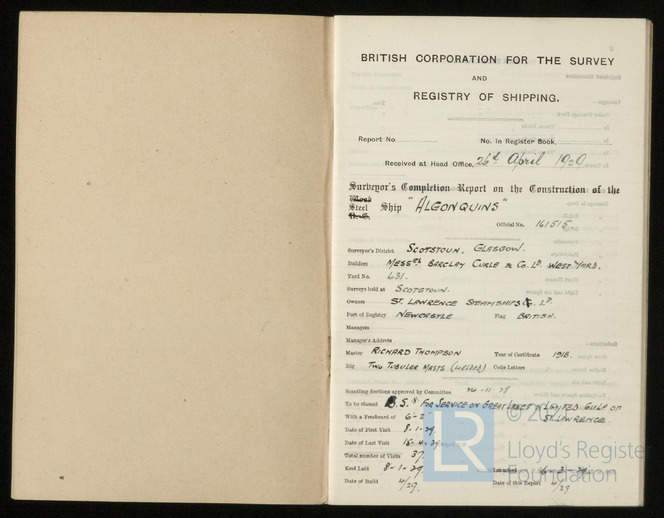 BRITISH CORPORATION FOR THE SURVEY
AND
REGISTRY OF SHIPPING.
Report No. No. in Register Book,
Received at Head Office, 26th April 1929
Surveyor's Completion Report on the Construction of the
Wood
Steel Ship "ALGONQUINS"
Official No. 161515
Surveyor's District SCOTSTOUN. GLASGOW.
Builders MESSRS BARCLAY CURLE & Co. LD. WEST YARD.
Yard No. 631.
Surveys held at SCOTSTOUN.
Owners ST. LAWRENCE STEAMSHIPS Co. LD.
Port of Registry NEWCASTLE Flag BRITISH.
Managers
Manager's Address
Master RICHARD THOMPSON Year of Certificate 1918.
Rig TWO TUBULAR MASTS (WELDED) Code Letters
Scantling Sections approved by Committee 24-11-28
To be classed B.S.* FOR SERVICE ON GREAT LAKES & LIMITED GULF OF
ST. LAWRENCE
With a Freeboard of 6-2
Date of First Visit 8-1-29.
Date of Last Visit 16-4-29
Total number of Visits 37
Keel Laid 8-1-29. Launched 6-3-29.
Date of Build 4/29. Date of this Report 4/29
LR
©
Lloyd's Register
Foundation